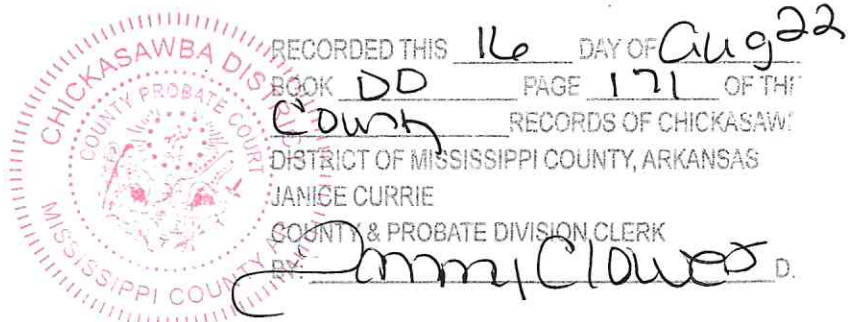 CHICKASAWBA DISTRICT
COUNTY PROBATE COURT
MISSISSIPPI COUNTY
RECORDED THIS 16 DAY OF Aug 22
BOOK DD PAGE 171 OF TH
County RECORDS OF CHICKASAW
DISTRICT OF MISSISSIPPI COUNTY, ARKANSAS
JANICE CURRIE
COUNTY & PROBATE DIVISION CLERK
BY: Clowers D.